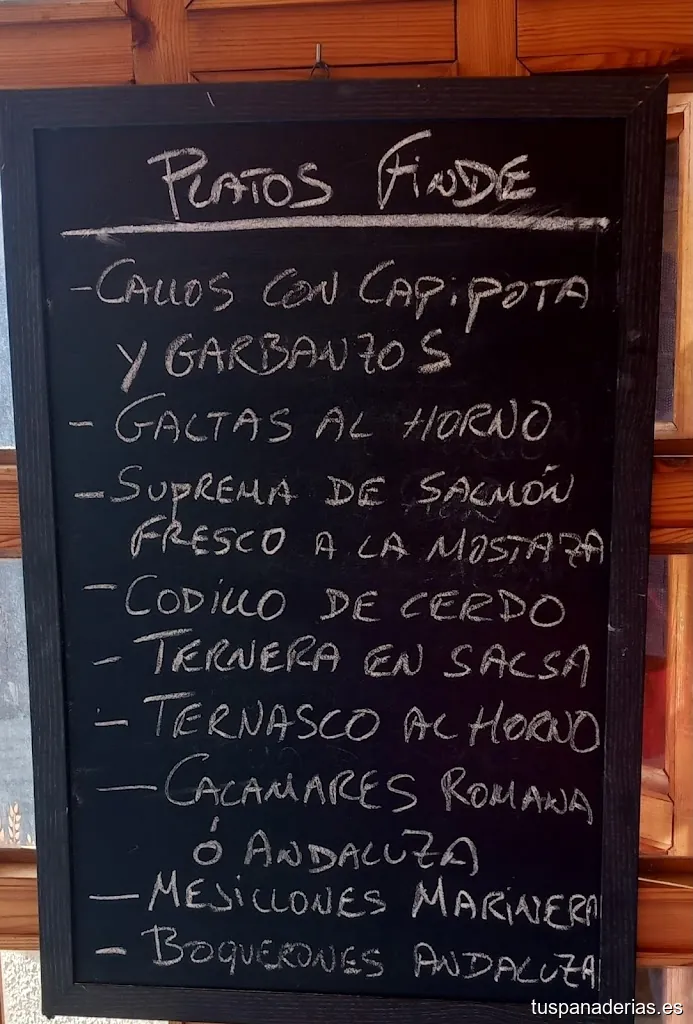 PLATOS FINDE
- CALLOS CON CAPIPOTA
Y GARBANZOS
- GALTAS AL HORNO
- SUPREMA DE SALMÓN
FRESCO A LA MOSTAZA
- CODILLO DE CERDO
- TERNERA EN SALSA
- TERNASCO AL HORNO
- CALAMARES ROMANA
Ó ANDALUZA
- MEJILLONES MARINERA
- BOQUERONES ANDALUZA
tuspanaderias.es